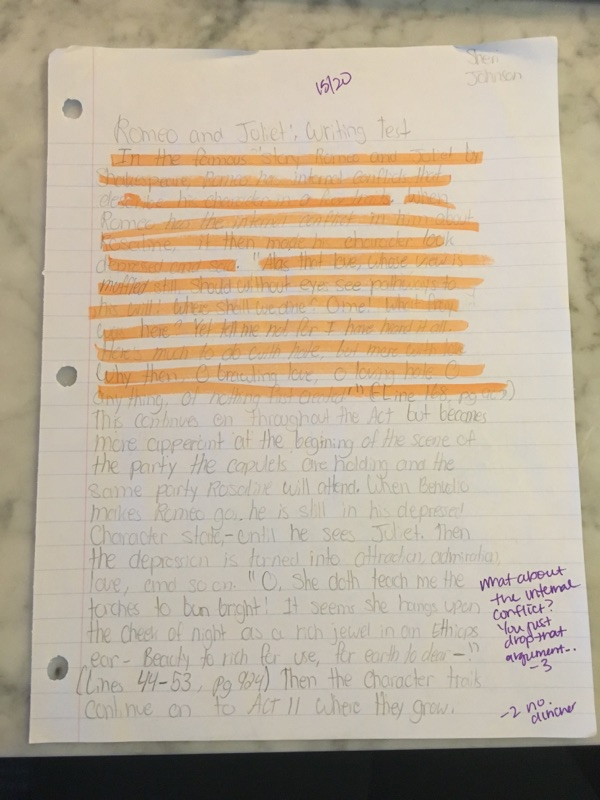 15/20
Sheri
Johnson
Romeo and Joliet: Writing Test
In the famous story Romeo and Juliet by
Shakespeare Romeo has internal conflicts that
his character in a
Romeo has the internal conflict in him about
Rosaline, it then made his character look
depressed and . "Alas that love, whose view is
muffled still, should without eyes see pathways to
his will! Where shall we dine? O me! What fray
was here? Yet tell me not for I have heard it all.
Here's much to do with hate, but more with love
Why then, O brawling love, O loving hate, O
anything, of nothing first " (Line 168, pg
This continues on throughout the Act but becomes
more apperant at the begining of the scene of
the party the capulets are holding and the
same party Rosaline will attend. When Benvolio
makes Romeo go, he is still in his depressed
Character state,-until he sees Juliet. Then
the depression is turned into attraction, admiration,
love, and so on. "O, She doth teach me the
torches to burn bright! It seems she hangs upon
the cheek of night as a rich jewel in an Ethiops
ear- Beauty to rich for use, for earth to dear-!"
(Lines 44-53, pg 924) Then the character traits
continue on to ACT II where they grow.
what about
the internal
conflict?
You just
drop that
argument..
-3
-2 no
clincher